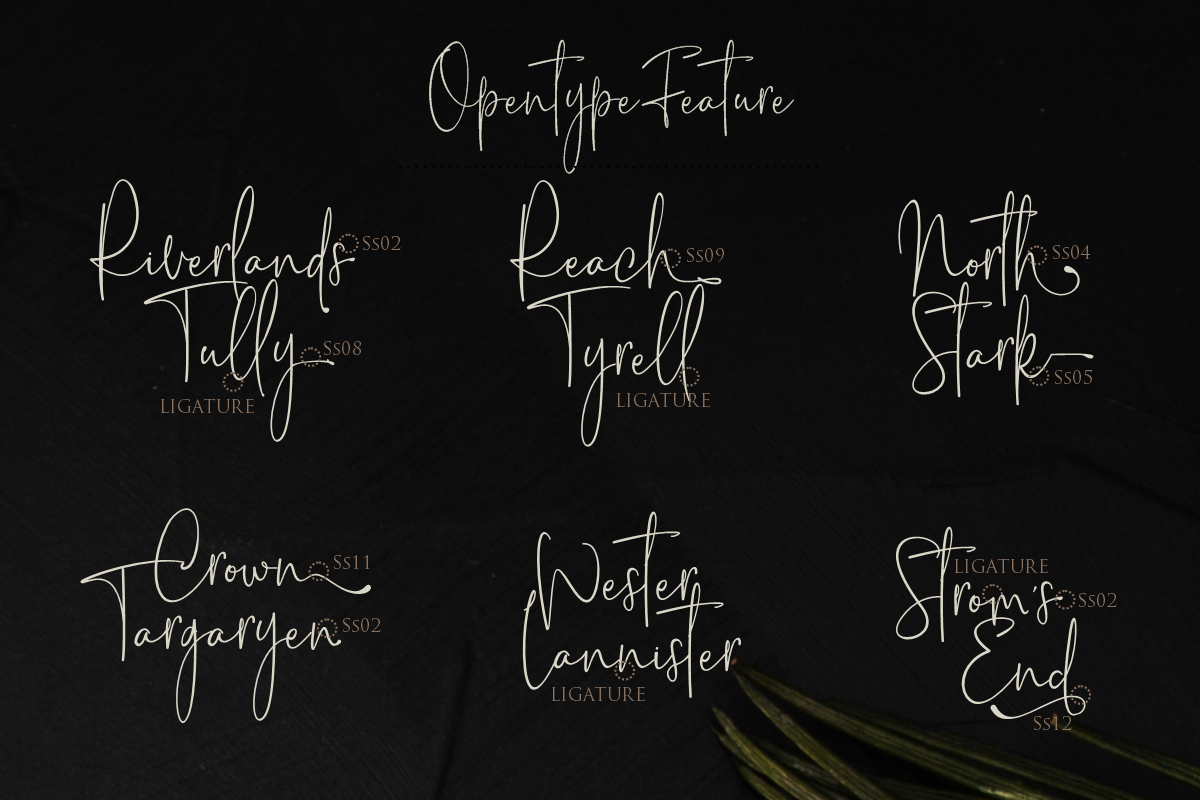 Opentype Feature
Riverlands Ss02
Tully Ss08
LIGATURE
Reach Ss09
Tyrell
LIGATURE
North Ss04
Stark Ss05
Crown Ss11
Targaryen Ss02
Wester
Lannister
LIGATURE
LIGATURE
Strom's Ss02
End
Ss12